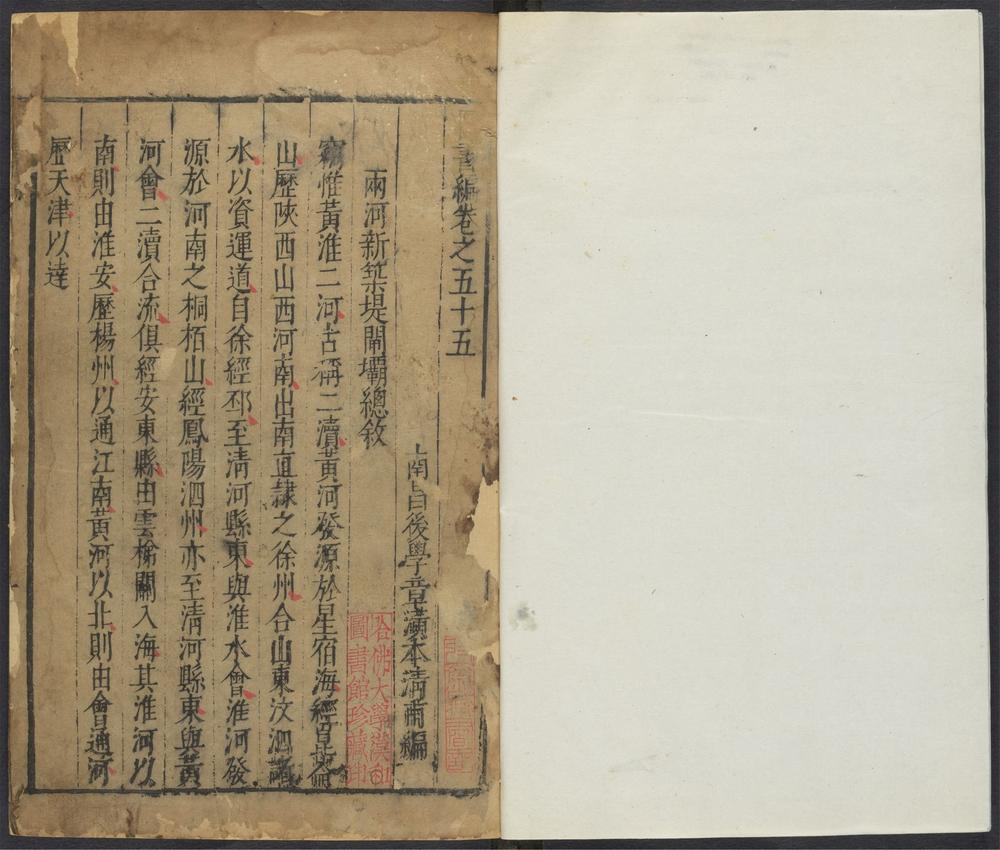 書編卷之五十五
南昌後學章潢本清甫編
兩河新築堤閘壩總敘
竊惟黃淮二河古稱二瀆黃河發源於星宿海經崑崙
山歷陜西山西河南出南直隷之徐州合山東汶泗諸
水以資運道自徐經邳至清河縣東與淮水會淮河發
源於河南之桐栢山經鳳陽泗州亦至清河縣東與黃
河會二瀆合流俱經安東縣由雲梯關入海其淮河以
南則由淮安歷楊州以通江南黃河以北則由會通河
歷天津以達
哈佛大學漢和
圖書館珍藏印